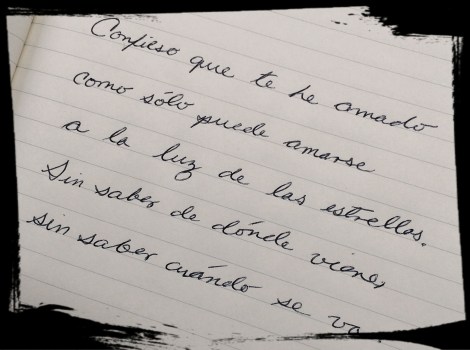 Confieso que te he amado
como sólo puede amarse
a la luz de las estrellas.
Sin saber de dónde vienes
sin saber cuándo se va